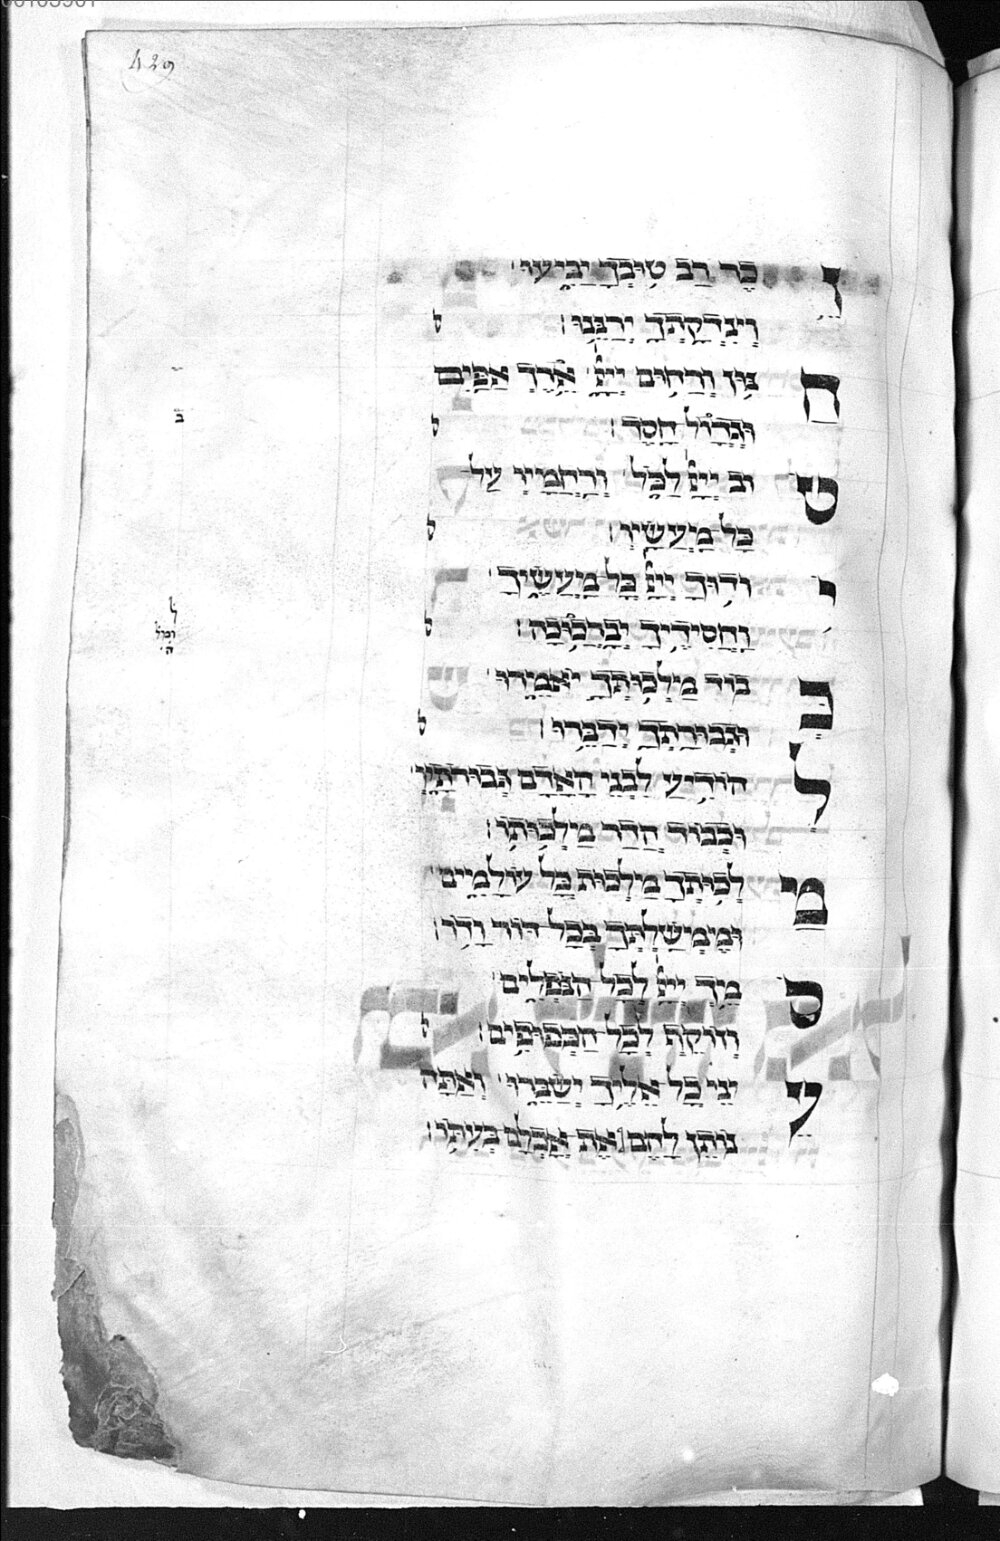 429
זֵ כֶר רַב טוּבְךָ יַבִּיעוּ
וְצִדְקָתְךָ יְרַנֵּנוּ׃ ס
חַ נּוּן וְרַחוּם ייָ אֶרֶךְ אַפַּיִם
וּגְדָול חָסֶד׃ ס
ט וב ייָ לַכֹּל וְרַחֲמָיו עַל
כָּל מַעֲשָׂיו׃ ס
י ודוּךָ ייָ כָּל מַעֲשֶׂיךָ
וַחֲסִידֶיךָ יְבָרְכוּכָה׃ ס
כְּ בוד מַלְכוּתְךָ יֹאמֵרוּ
וּגְבוּרָתְךָ יְדַבֵּרוּ׃ ס
לְ הודִיעַ לִבְנֵי הָאָדָם גְּבוּרֹתָיו
וּכְבוד הֲדַר מַלְכוּתו׃
מַ לְכוּתְךָ מַלְכוּת כָּל עולָמִים
וּמֶמְשַׁלְתְּךָ בְּכָל דּור וָדֹר׃
ס מֵךְ ייָ לְכָל הַנֹּפְלִים
וְזוקֵף לְכָל הַכְּפוּפִים׃ ס
עֵ ינֵי כָל אֵלֶיךָ יְשַׂבֵּרוּ וְאַתָּה
נותֵן לָהֶם אֶת אָכְלָם בְּעִתּו׃
ב
ל